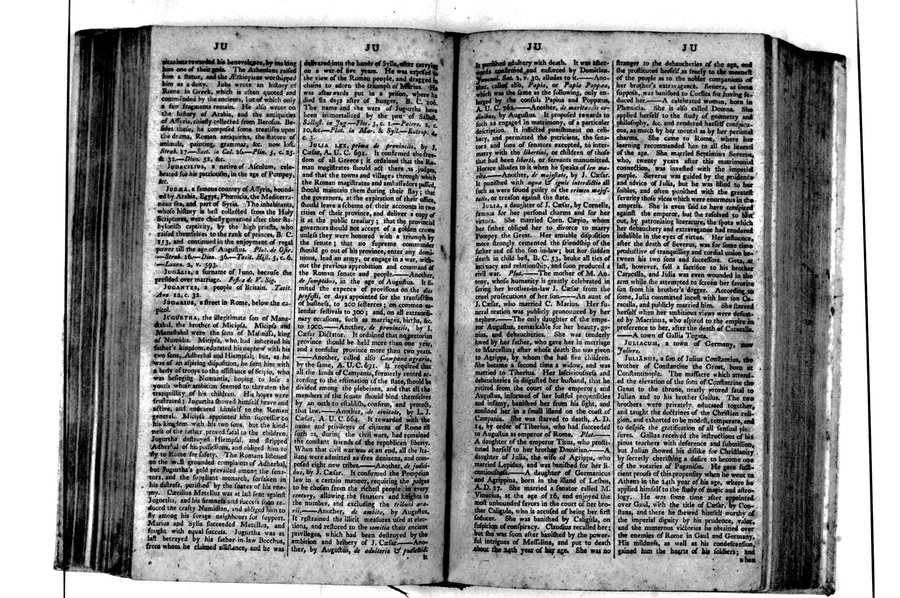 JU
JU
picians rewarded his benevolence, by making
him one of their gods. The Athenians raised
him a statue, and the Æthiopians worshipped
him as a deity. Juba wrote an history of
Rome in Greek, which is often quoted and
commended by the ancients, but of which only
a few fragments remain. He also wrote on
the history of Arabia, and the antiquities
of Assyria, chiefly collected from Berosus. Be-
sides these, he composed some treatises upon
the drama, Roman antiquities, the nature of
animals, painting, grammar, &c. now lost.
Strab. 17.—Suet. in Cal. 26.—Plin. 5, c. 25.
& 32.—Dion. 51, &c.
JUDACILIUS, a native of Asculum, cele-
brated for his patriotism, in the age of Pompey,
&c.
JUDÆA, a famous country of Assyria, bound-
ed by Arabia, Egypt, Phœnicia, the Mediterra-
nean sea, and part of Syria. The inhabitants,
whose history is best collected from the Holy
Scriptures, were chiefly governed after their Ba-
bylonish captivity, by the high priests, who
raised themselves to the rank of princes, B. C.
153, and continued in the enjoyment of regal
power till the age of Augustus. Plut. de Osir.
—Strab. 16.—Dion. 36.—Tacit. Hist. 5, c. 6.
—Lucan. 2, v. 593.
JUGALIS, a surname of Juno, because she
presided over marriage. Festus de V. Sig.
JUGANTES, a people of Britain. Tacit.
Ann. 12, c. 32.
JUGARIUS, a street in Rome, below the ca-
pitol.
JUGURTHA, the illegitimate son of Mana-
stabal, the brother of Micipsa. Micipsa and
Manastabal were the sons of Masinissa, king
of Numidia. Micipsa, who had inherited his
father's kingdom, educated his nephew with his
two sons, Adherbal and Hiempsal; but, as he
was of an aspiring disposition, he sent him with
a body of troops to the assistance of Scipio, who
was besieging Numantia, hoping to lose a
youth whose ambition seemed to threaten the
tranquillity of his children. His hopes were
frustrated; Jugurtha showed himself brave and
active, and endeared himself to the Roman
general. Micipsa appointed him successor to
his kingdom with his two sons, but the kind-
ness of the father proved fatal to the children.
Jugurtha destroyed Hiempsal, and stripped
Adherbal of his possessions, and obliged him to
fly to Rome for safety. The Romans listened
to the well grounded complaints of Adherbal,
but Jugurtha's gold prevailed among the sena-
tors, and the suppliant monarch, forsaken in
his distress, perished by the snares of his ene-
my. Cæcilius Metellus was at last sent against
Jugurtha, and his firmness and success soon re-
duced the crafty Numidian, and obliged him to
fly among his savage neighbours for support.
Marius and Sylla succeeded Metellus, and
fought with equal success. Jugurtha was at
last betrayed by his father-in-law Bocchus,
from whom he claimed assistance, and he was
delivered into the hands of Sylla, after carrying
on a war of five years. He was exposed to
the view of the Roman people, and dragged in
chains to adorn the triumph of Marius. He
was afterwards put in a prison, where he
died six days after of hunger, B. C. 106.
The name and the wars of Jugurtha have
been immortalized by the pen of Sallust.
Sallust. in Jug.—Flor. 3, c. 1.—Paterc. 2, c.
10, &c.—Plut. in Mar. & Syll.—Eutrop. 4,
c. 3.
JULIA LEX, prima de provinciis, by J.
Cæsar, A. U. C. 691. It confirmed the free-
dom of all Greece; it ordained that the Ro-
man magistrates should act there as judges,
and that the towns and villages through which
the Roman magistrates and ambassadors passed,
should maintain them during their stay; that
the governors, at the expiration of their office,
should leave a scheme of their accounts in two
cities of their province, and deliver a copy of
it at the public treasury; that the provincial
governors should not accept of a golden crown
unless they were honored with a triumph by
the senate; that no supreme commander
should go out of his province, enter any domi-
nions, lead an army, or engage in a war, with-
out the previous approbation and command of
the Roman senate and people.—Another,
de sumptibus, in the age of Augustus. It li-
mited the expence of provisions on the dies
profesti, or days appointed for the transaction
of business, to 200 sesterces; on common ca-
lendar festivals to 300; and, on all extraordi-
nary occasions, such as marriages, births, &c.
to 1000.—Another, de provinciis, by J.
Cæsar Dictator. It ordained that no pretorian
province should be held more than one year,
and a consular province more than two years.
—Another, called also Campana agraria,
by the same, A. U. C. 691. It required that
all the lands of Campania, formerly rented ac-
cording to the estimation of the state, should be
divided among the plebeians, and that all the
members of the senate should bind themselves
by an oath to establish, confirm, and protect,
that law.—Another, de civitate, by L. J.
Cæsar, A. U. C. 664. It rewarded with the
name and privileges of citizens of Rome all
such as, during the civil wars, had remained
the constant friends of the republican liberty.
When that civil war was at an end, all the Ita-
lians were admitted as free denizens, and com-
posed eight new tribes.—Another, de judici-
bus, by J. Cæsar. It confirmed the Pompeian
law in a certain manner, requiring the judges
to be chosen from the richest people in every
century, allowing the senators and knights in
the number, and excluding the tribuni æra-
rii.—Another, de ambitu, by Augustus.
It restrained the illicit measures used at elec-
tions, and restored to the comitia their ancient
privileges, which had been destroyed by the
ambition and bribery of J. Cæsar.—Ano-
ther, by Augustus, de adulterio & pudicitiâ.
It
JU
JU
It punished adultery with death. It was after-
wards confirmed and enforced by Domitian.
Juvenal. Sat. 2, v. 30, alludes to it.—Ano-
ther, called also, Papia, or Papia Poppæa,
which was the same as the following, only en-
larged by the consuls Papius and Poppæus,
A. U. C. 762.—Another, de maritandis or-
dinibus, by Augustus. It proposed rewards to
such as engaged in matrimony, of a particular
description. It inflicted punishment on celi-
bacy, and permitted the patricians, the sena-
tors and sons of senators excepted, to inter-
marry with the libertini, or children of those
that had been liberti, or servants manumitted.
Horace alludes to it when he speaks of lex ma-
rita.—Another, de majestate, by J. Cæsar.
It punished with aquæ & ignis interdictio all
such as were found guilty of the crimen majes-
tatis, or treason against the state.
JULIA, a daughter of J. Cæsar, by Cornelia,
famous for her personal charms and for her
virtues. She married Corn. Cæpio, whom
her father obliged her to divorce to marry
Pompey the Great. Her amiable disposition
more strongly cemented the friendship of the
father and of the son in-law; but her sudden
death in child bed, B. C. 53, broke all ties of
intimacy and relationship, and soon produced a
civil war. Plut.—The mother of M. An-
tony, whose humanity is greatly celebrated in
saving her brother-in-law J. Cæsar from the
cruel prosecutions of her son.—An aunt of
J. Cæsar, who married C. Marius. Her fu-
neral oration was publicly pronounced by her
nephew.—The only daughter of the empe-
ror Augustus, remarkable for her beauty, ge-
nius, and debaucheries. She was tenderly
loved by her father, who gave her in marriage
to Marcellus; after whose death she was given
to Agrippa, by whom she had five children.
She became a second time a widow, and was
married to Tiberius. Her lasciviousness and
debaucheries so disgusted her husband, that he
retired from the court of the emperor; and
Augustus, informed of her lustful propensities
and infamy, banished her from his sight, and
confined her in a small island on the coast of
Campania. She was starved to death, A. D.
14, by order of Tiberius, who had succeeded
to Augustus as emperor of Rome. Plut.—
A daughter of the emperor Titus, who prosti-
tuted herself to her brother Domitian.—A
daughter of Julia, the wife of Agrippa, who
married Lepidus, and was banished for her li-
centiousness.—A daughter of Germanicus
and Agrippina, born in the island of Lesbos,
A. D. 17. She married a senator called M.
Vinucius, at the age of 16, and enjoyed the
most unbounded favors in the court of her bro-
ther Caligula, who is accused of being her first
seducer. She was banished by Caligula, on
suspicion of conspiracy. Claudius recalled her;
but she was soon after banished by the power-
ful intrigues of Messalina, and put to death
about the 24th year of her age. She was no
stranger to the debaucheries of the age, and
she prostituted herself as freely to the meanest
of the people as to the nobler companions of
her brother's extravagance. Seneca, as some
suppose, was banished to Corsica for having se-
duced her.—A celebrated woman, born in
Phœnicia. She is also called Domna. She
applied herself to the study of geometry and
philosophy, &c. and rendered herself conspicu-
ous, as much by her mental as by her personal
charms. She came to Rome, where her
learning recommended her to all the literati
of the age. She married Septimius Severus,
who, twenty years after this matrimonial
connection, was invested with the imperial
purple. Severus was guided by the prudence
and advice of Julia, but he was blind to her
foibles, and often punished with the greatest
severity those vices which were enormous in the
empress. She is even said to have conspired
against the emperor, but she resolved to blot
out, by patronising literature, the spots which
her debauchery and extravagance had rendered
indelible in the eyes of virtue. Her influence,
after the death of Severus, was for some time
productive of tranquillity and cordial union be-
tween his two sons and successors. Geta, at
last, however, fell a sacrifice to his brother
Caracalla, and Julia was even wounded in the
arm while she attempted to screen her favorite
son from his brother's dagger. According to
some, Julia committed incest with her son Ca-
racalla, and publicly married him. She starved
herself when her ambitious views were defeat-
ed by Macrinus, who aspired to the empire in
preference to her, after the death of Caracalla.
—A town of Gallia Togata.
JULIACUM, a town of Germany, now
Juliers.
JULIANUS, a son of Julius Constantius, the
brother of Constantine the Great, born at
Constantinople. The massacre which attend-
ed the elevation of the sons of Constantine the
Great to the throne, nearly proved fatal to
Julian and to his brother Gallus. The two
brothers were privately educated together,
and taught the doctrines of the Christian reli-
gion, and exhorted to be modest, temperate, and
to despise the gratification of all sensual plea-
sures. Gallus received the instructions of his
pious teachers with deference and submission,
but Julian showed his dislike for Christianity
by secretly cherishing a desire to become one
of the votaries of Paganism. He gave suffi-
cient proofs of this propensity when he went to
Athens in the 24th year of his age, where he
applied himself to the study of magic and astro-
logy. He was some time after appointed
over Gaul, with the title of Cæsar, by Con-
stans, and there he showed himself worthy of
the imperial dignity by his prudence, valor,
and the numerous victories he obtained over
the enemies of Rome in Gaul and Germany.
His mildness, as well as his condescension,
gained him the hearts of his soldiers; and
when